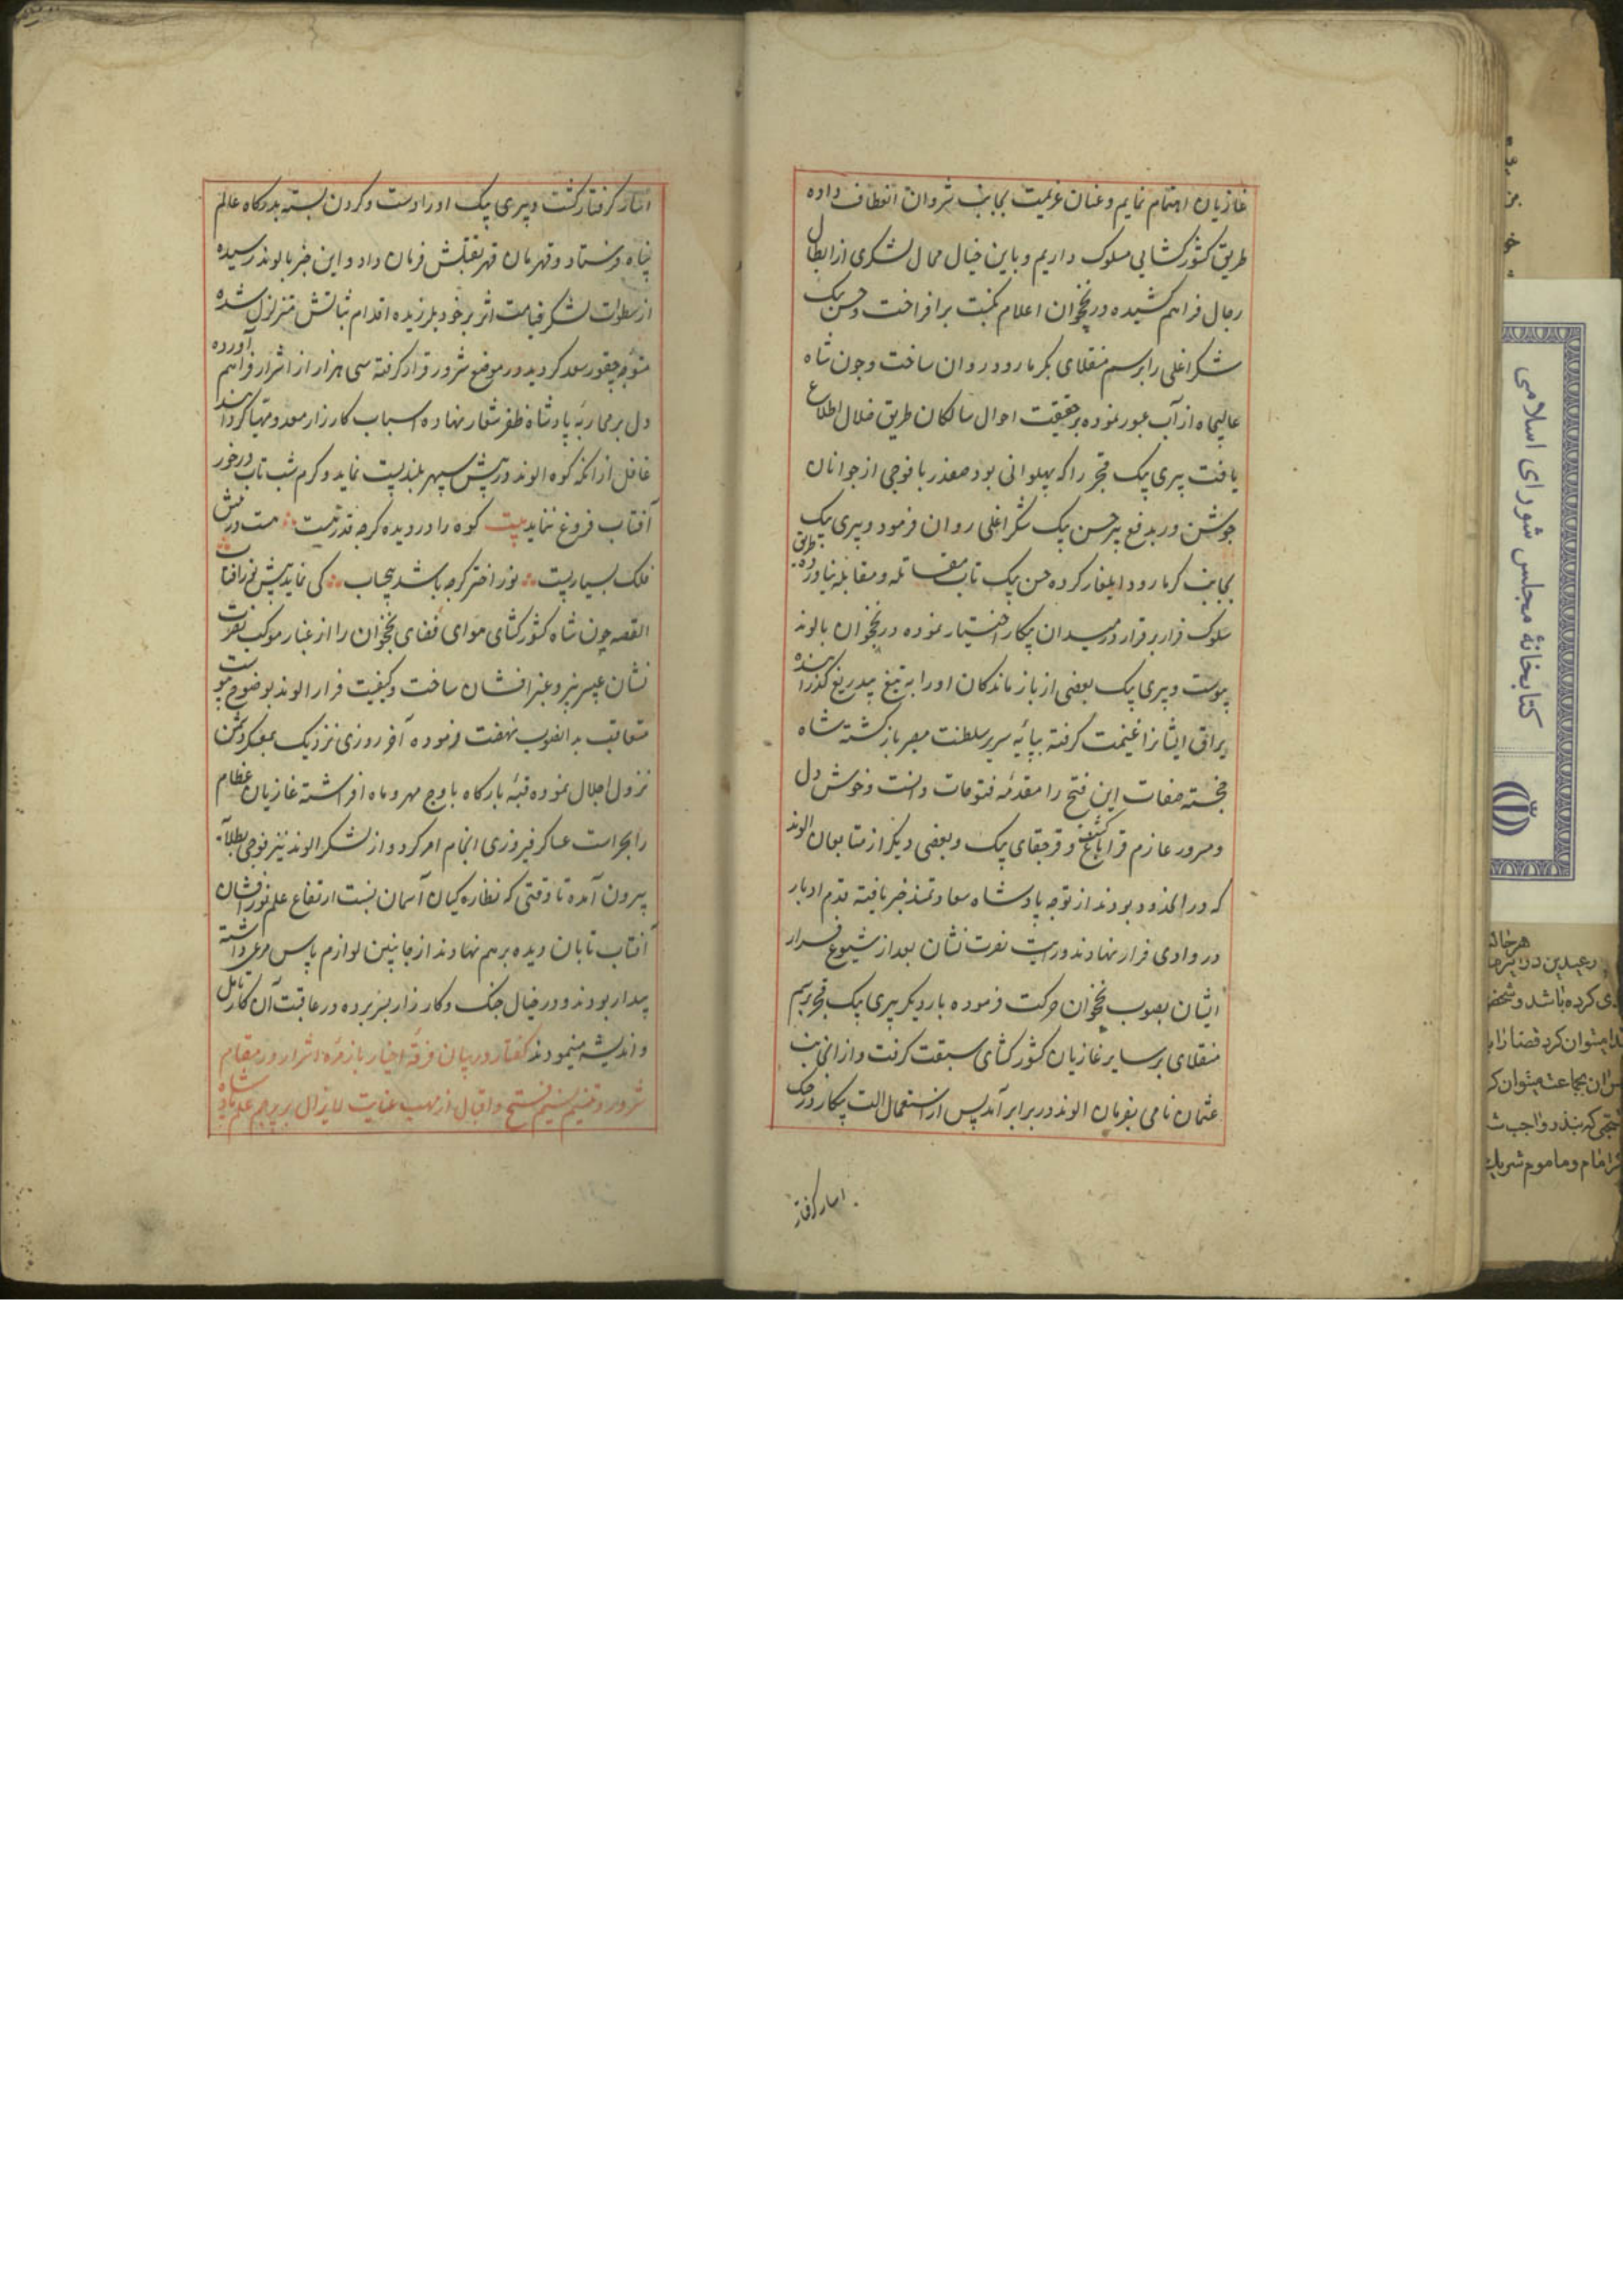 غازیان اهتمام نمایم و عنان عزیمت بجانب شروان انعطاف داده
طریق کشورکشایی مسلوک داریم و باین خیال محال لشکری از ابطال
رجال فراهم کشیده در نخجوان اعلام نکبت برافراخت و حسن بیک
شکراغلی را برسم منقلای بکرمارود روان ساخت و چون شاه
عالیجاه از آب عبور نموده بر حقیقت احوال سالکان طریق ضلال اطلاع
یافت پیری بیک قجر را که پهلوانی بود صفدر با فوجی از جوانان
جوشن ور بدفع بر حسن بیک شکراغلی روان فرمود و پیری بیک
بجانب کرمارود ایلغار کرده حسن بیک تاب مقاتله و مقابله نیاورده طریق
سلوک فرار بر قرار در میدان پیکار اختیار نموده در نخجوان بالوند
پیوست و پیری بیک بعضی از بازماندکان او را به تیغ بیدریغ کذرانیده
یراق ایشانرا غنیمت کرفته بپایه سریر سلطنت مصیر بازکشته شاه
خجسته صفات این فتح را مقدمه فتوحات دانست و خوش دل
و مسرور عازم قراباغ کشت و قرجقای بیک و بعضی دیکر از متابعان الوند
که در انحدود بودند از توجه پادشاه سعادتمند خبر یافته قدم ادبار
در وادی فرار نهادند و رایت نصرت نشان بعد از شیوع فرار
ایشان بصوب نخجوان حرکت فرموده بار دیکر پیری بیک قجر برسم
منقلای بر سایر غازیان کشورکشای سبقت کرفت و از انجانب
عثمان نامی بفرمان الوند در برابر آمد پس از استعمال الت پیکار در جنک
انبار کرفتار
انبار کرفتار کشت و پیری بیک او را دست و کردن بسته بدرکاه عالم
پناه فرستاد و قهرمان قهر بقتلش فرمان داد و این خبر بالوند رسیده
از سطوات لشکر قیامت اثر بر خود بلرزیده اقدام ثباتش متزلزل شده
متوجه چقور سعد کردید و در موضع شرور قرار کرفته سی هزار از اشرار فراهم آورده
دل بر محاربه پادشاه ظفر شعار نهاده اسباب کارزار معد و مهیا کردانید
غافل از انکه کوه الوند در پیش سپهر بلند پست نماید و کرم شب تاب در خور
آفتاب فروغ ننماید بیت کوه را در دیده کرچه قدریست هست در پیش
فلک بسیار پست نور اختر کرچه باشد بیحجاب کی نماید پیش نور آفتاب
القصه چون شاه کشورکشای هوای فضای نخجوان را از غبار موکب نصرت
نشان عبیربیز و عنبرافشان ساخت و کیفیت فرار الوند بوضوح پیوست
متعاقب بدانصوب نهضت فرموده آخر روزی نزدیک بمعسکر دشمن
نزول اجلال نموده قبه بارکاه باوج مهر و ماه افراشته غازیان عظام
را بحراست عساکر فیروزی انجام امر کرد و از لشکر الوند نیز فوجی بطلایه
بیرون آمده تا وقتی که نظاره کیان آسمان بنسبت ارتفاع علم نورافشان
آفتاب تابان دیده بر هم نهادند از جانبین لوازم پاس مرعی داشته
بیدار بودند و در خیال جنک و کارزار بسر برده در عاقبت آن کار تامل
و اندیشه مینمودند کفتار در بیان فرقه اخیار با زمره اشرار در مقام
شرور و تنسیم نسیم فتح و اقبال از مهب عنایت لایزال بر پرچم علم شاه
کتابخانهٔ مجلس شورای اسلامی